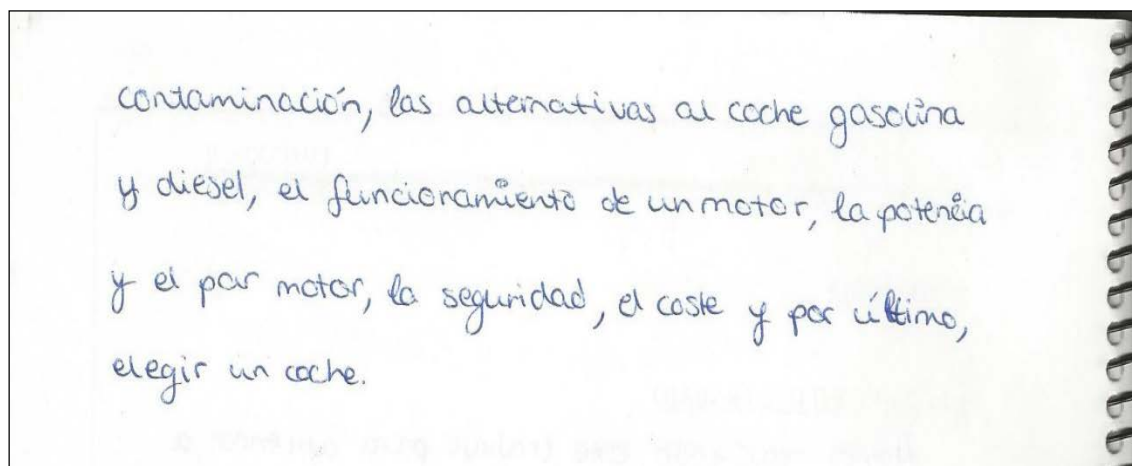 contaminación, las alternativas al coche gasolina
y diesel, el funcionamiento de un motor, la potencia
y el par motor, la seguridad, el coste y por último,
elegir un coche.